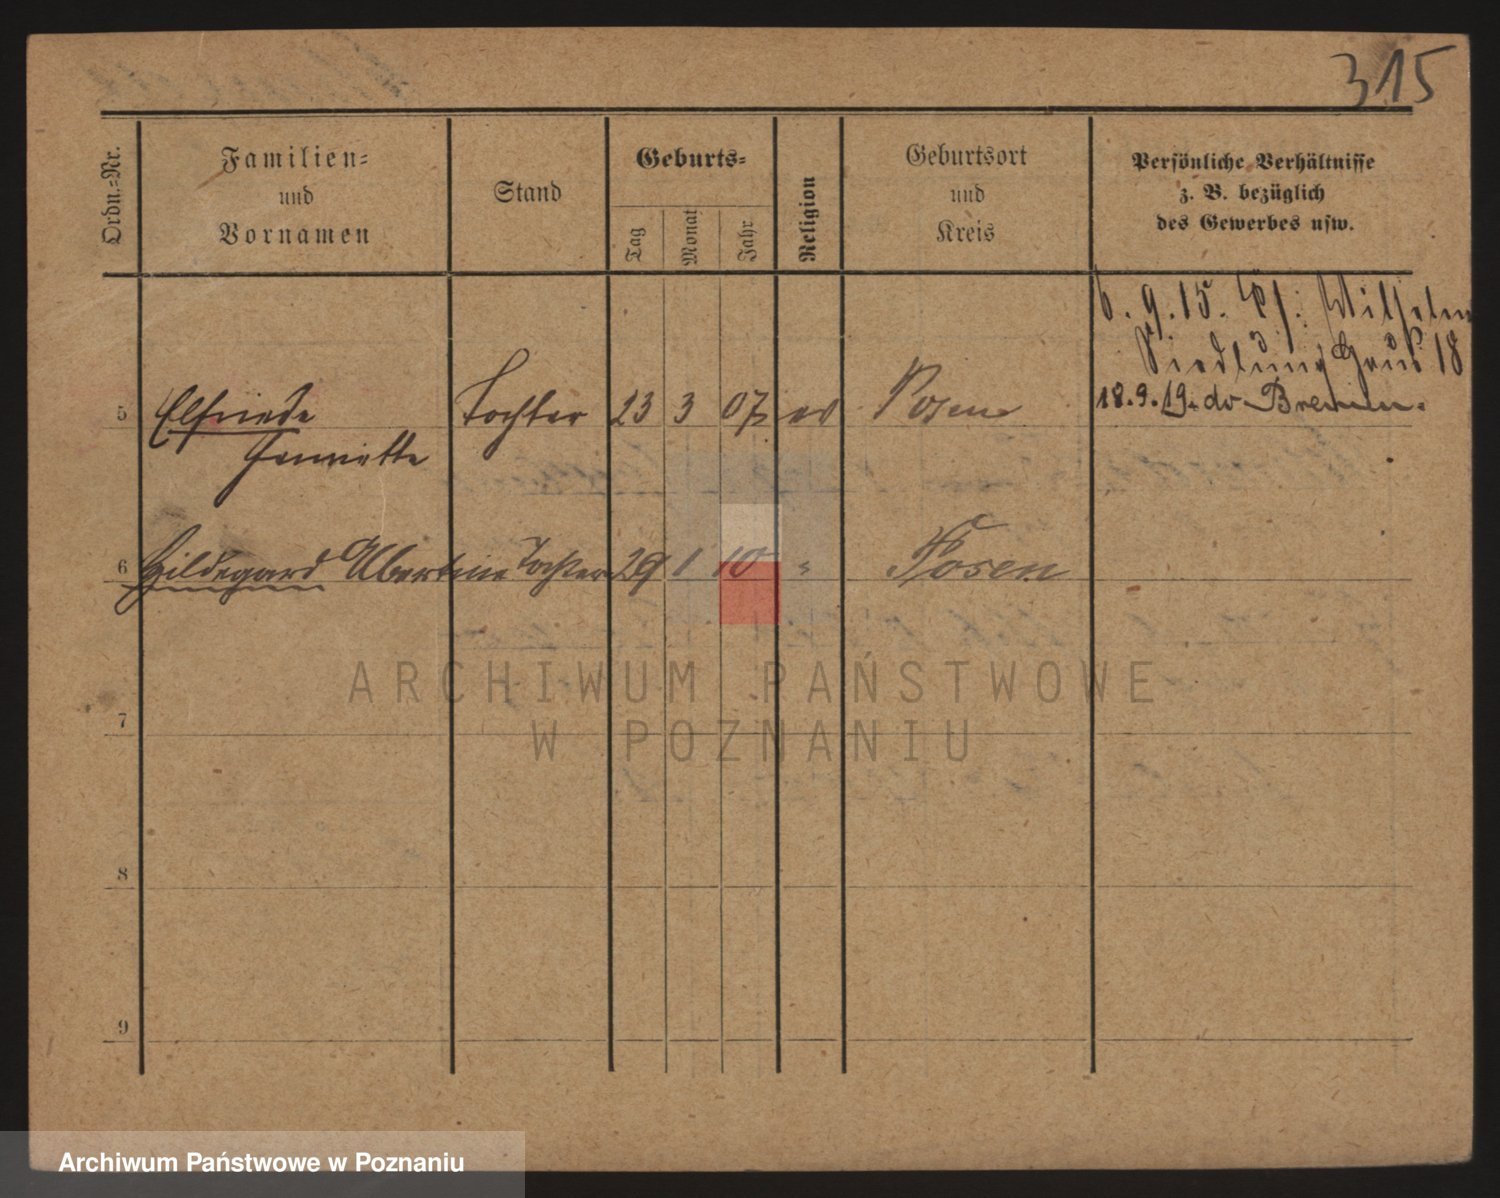 315
Ordn.=Nr.
Familien=
und
Vornamen
Stand
Geburts=
Tag
Monat
Jahr
Religion
Geburtsort
und
Kreis
Persönliche Verhältnisse
z. B. bezüglich
des Gewerbes usw.
6.9.15. Wilhelm
Siedlung 18
5 Elfriede Tochter 23 3 07 ev Posen 18.9.19. do Bremen.
Henriette
6 Hildegard Albertine Tochter 29 1 10 " Posen
7
8
9
ARCHIWUM PAŃSTWOWE
W POZNANIU
Archiwum Państwowe w Poznaniu